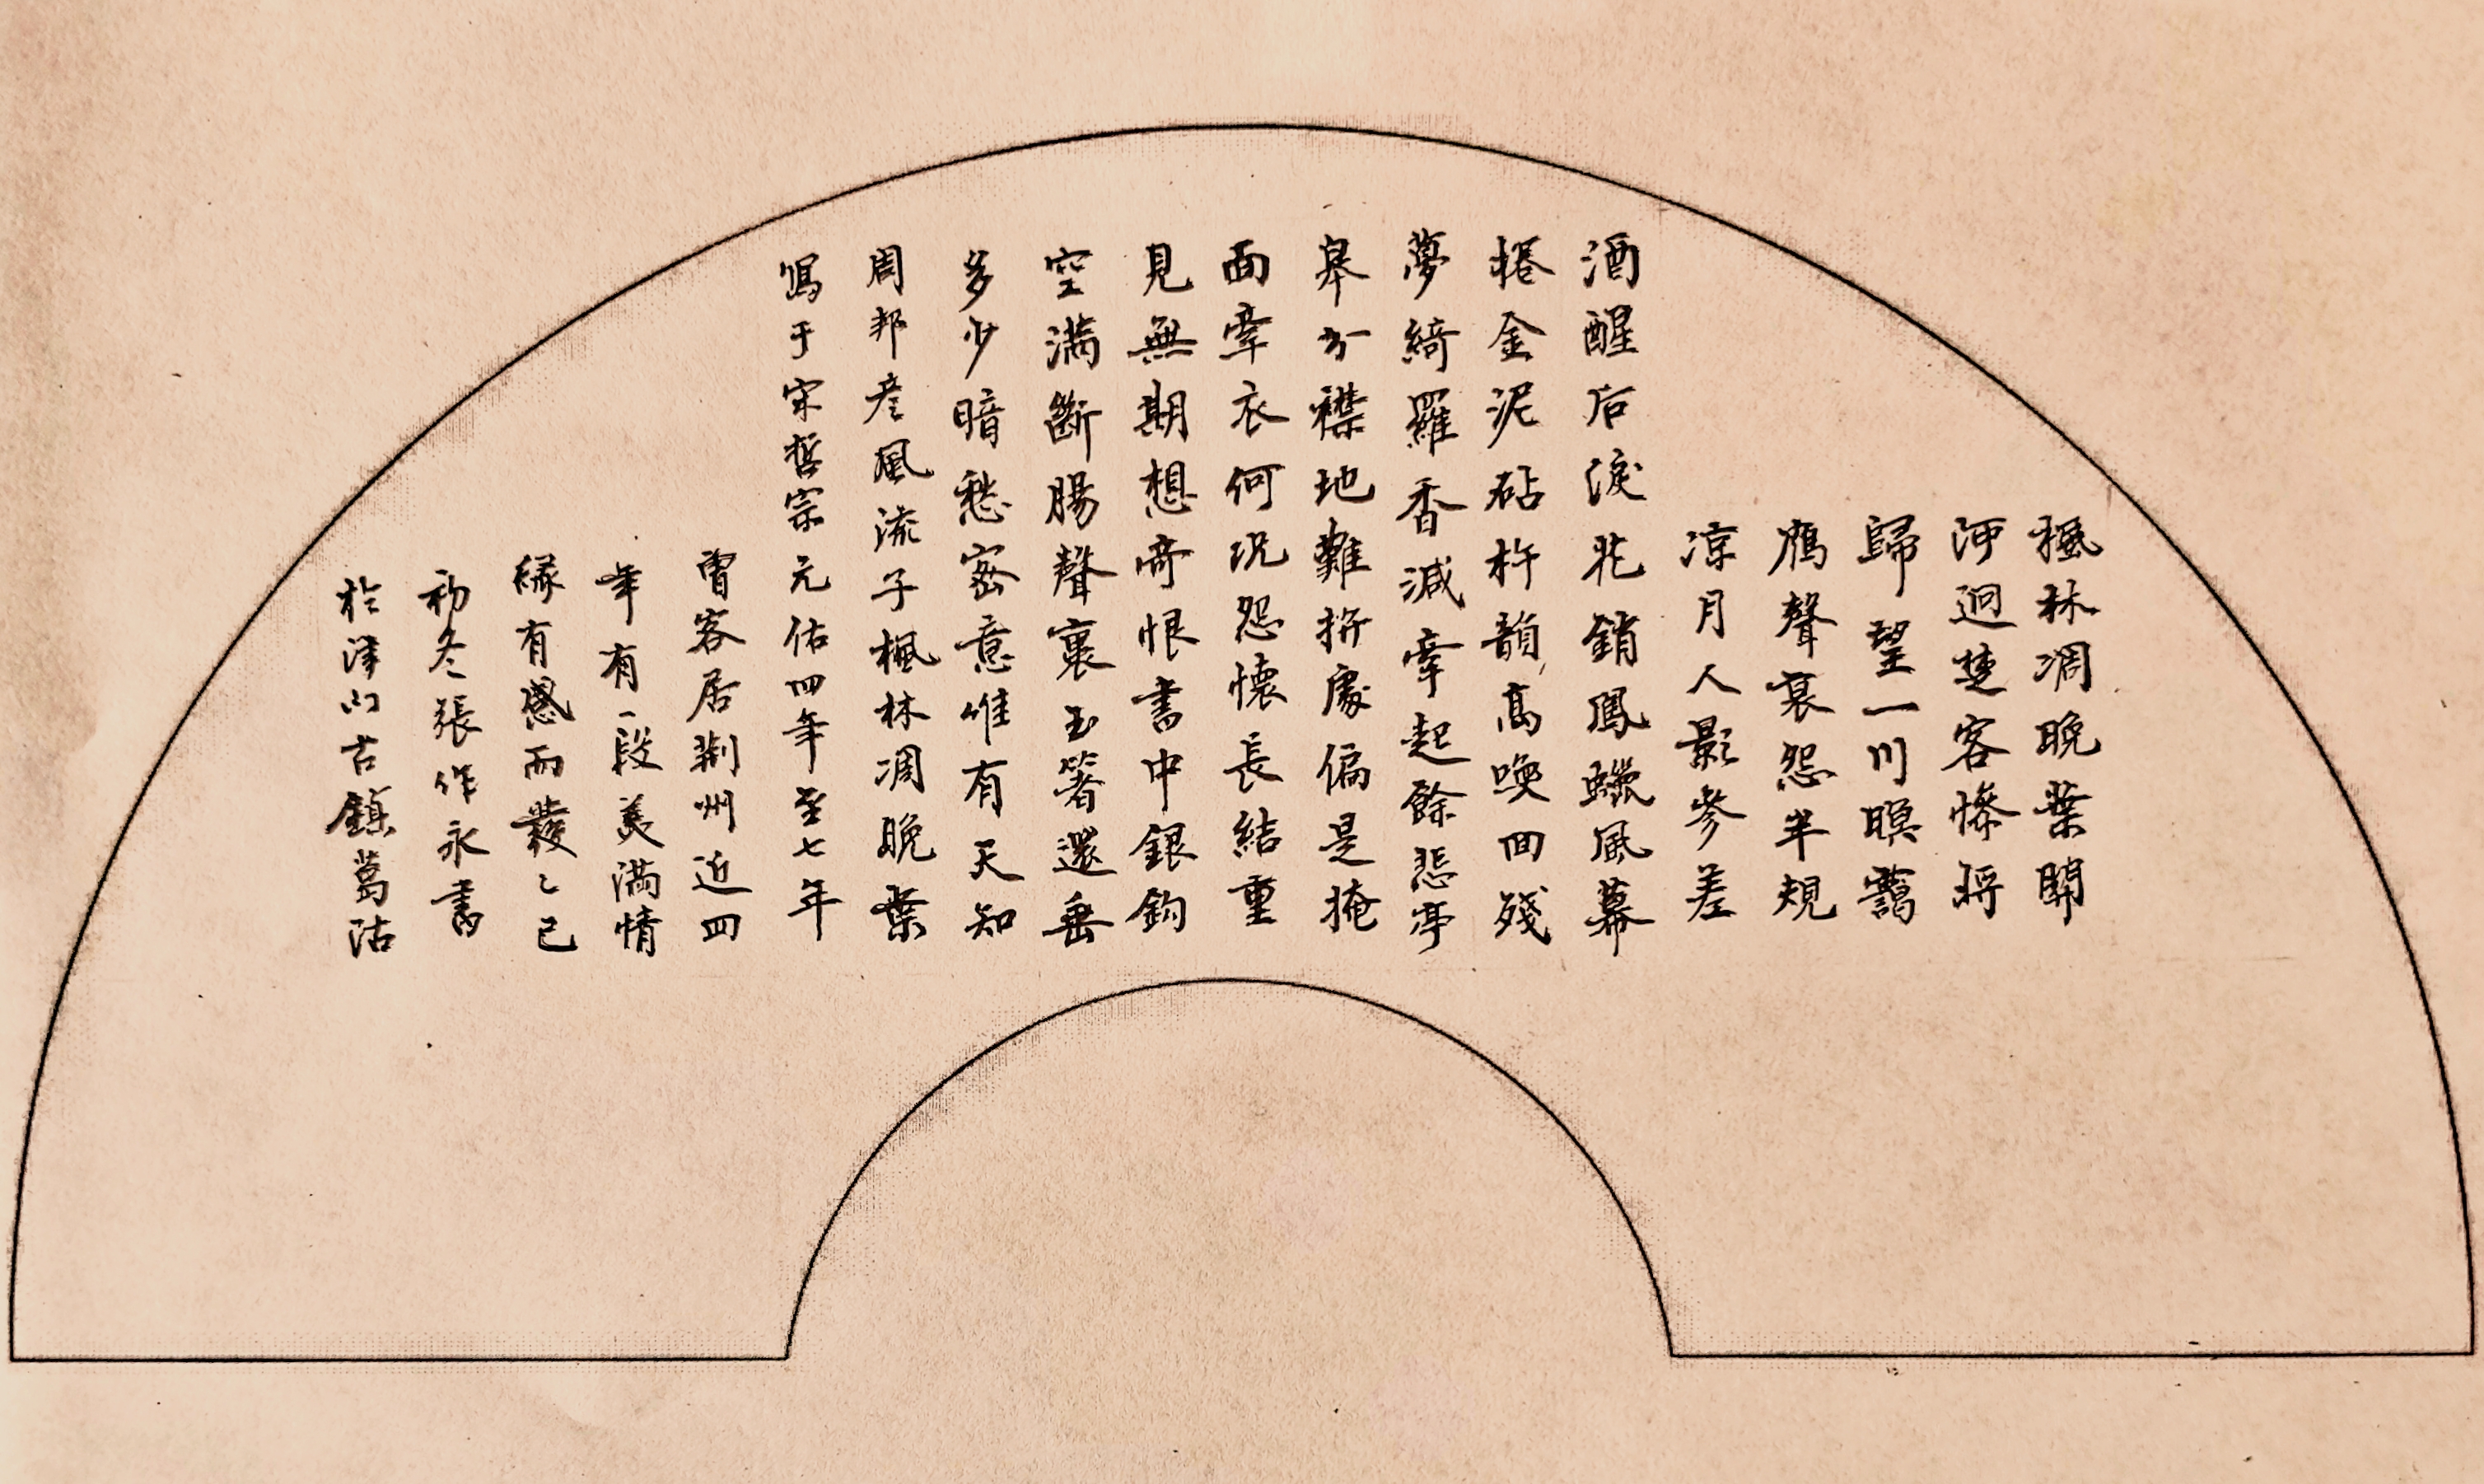 楓林凋晚葉關
河迥楚客慘將
歸望一川暝靄
鴈聲哀怨半規
涼月人影參差
酒醒后淚花銷鳳蠟風幕
捲金泥砧杵韻高喚回殘
夢綺羅香減牽起餘悲亭
皋分襟地難拚處偏是掩
面牽衣何況怨懷長結重
見無期想寄恨書中銀鈎
空滿斷腸聲裏玉箸還垂
多少暗愁密意唯有天知
周邦彦風流子楓林凋晚葉
寫于宋哲宗元佑四年至七年
曾客居荆州近四
年有一段美滿情
緣有感而發乙巳
初冬張作永書
於津門古鎮葛沽